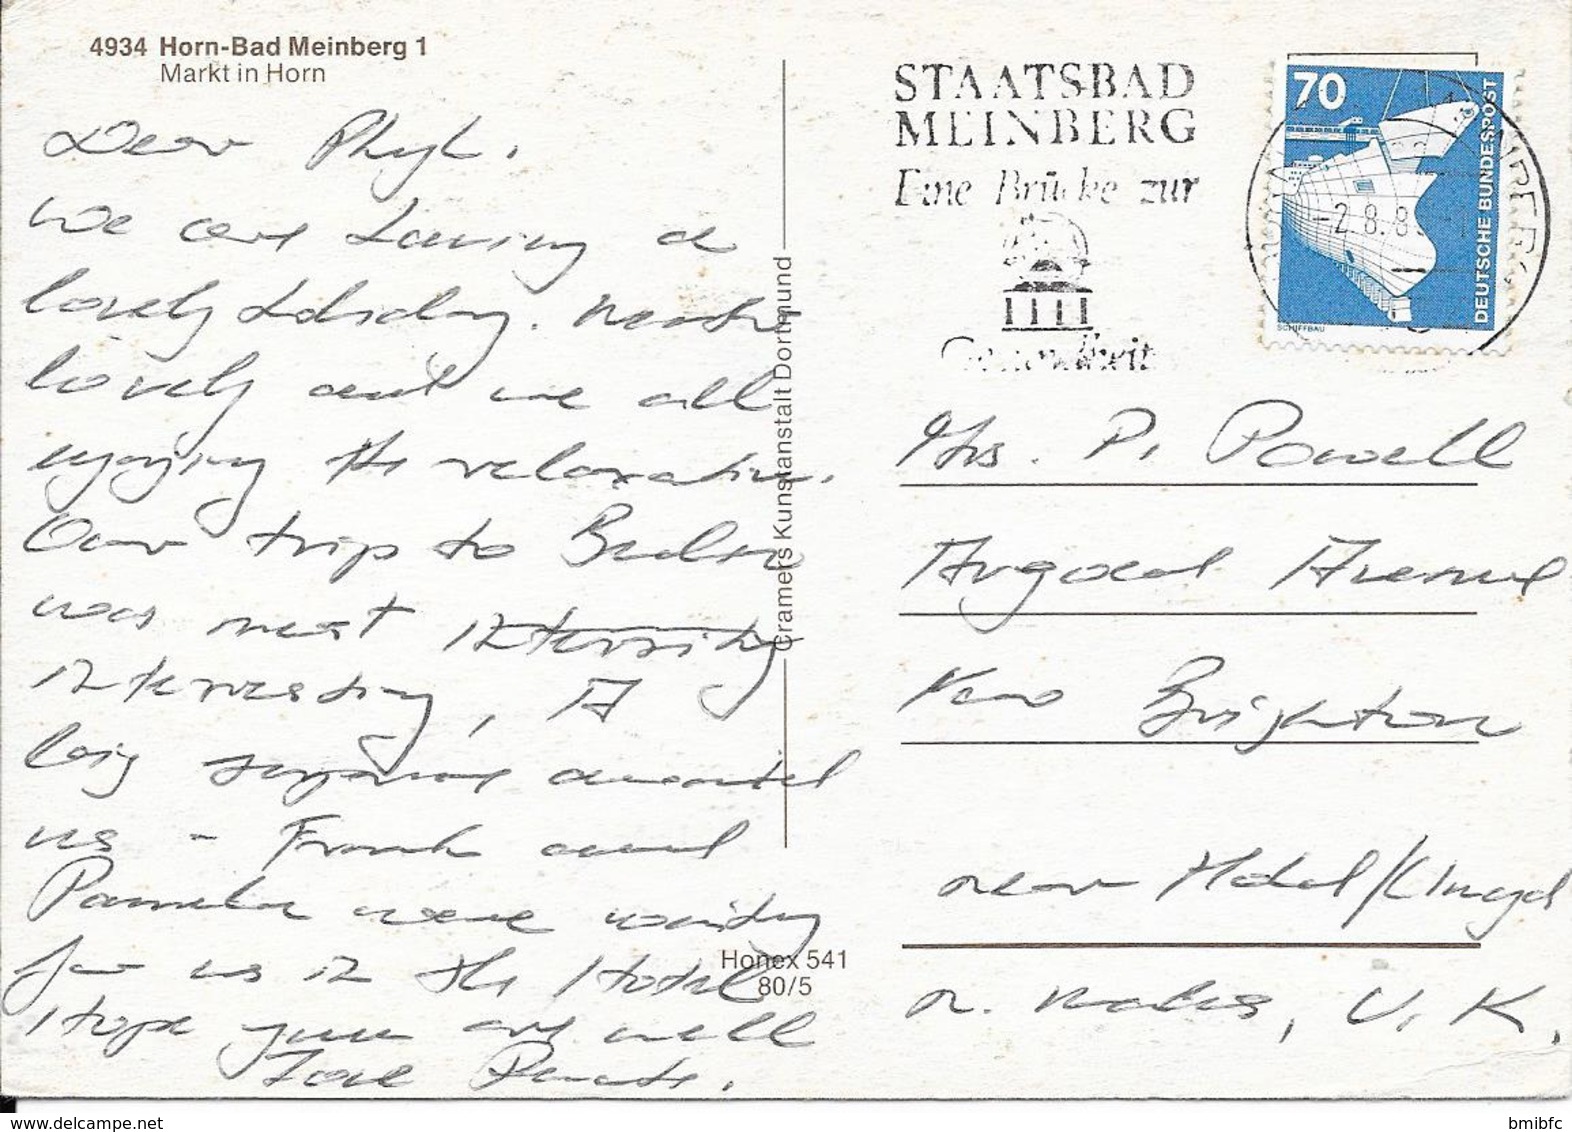 4934 Horn-Bad Meinberg 1
Markt in Horn
Dear Phyl.
We are having a
lovely holiday.
lovely and we all
enjoying the relaxation.
Our trip to Berlin
was most intersting
interesting, A
big surprise awaited
us - Frank and
Pamela were waiting
for us in the Hotel
Hope you are well
Love Renate.
Cramers Kunstanstalt Dortmund
Honex 541
80/5
STAATSBAD
MEINBERG
Eine Brücke zur
Gesundheit
70
DEUTSCHE BUNDESPOST
SCHIFFBAU
-2.8.8
Mrs. P. Powell
Argoed Avenue
New Brighton
near Mold/Clwyd
N. Wales, U.K.
bmibfc